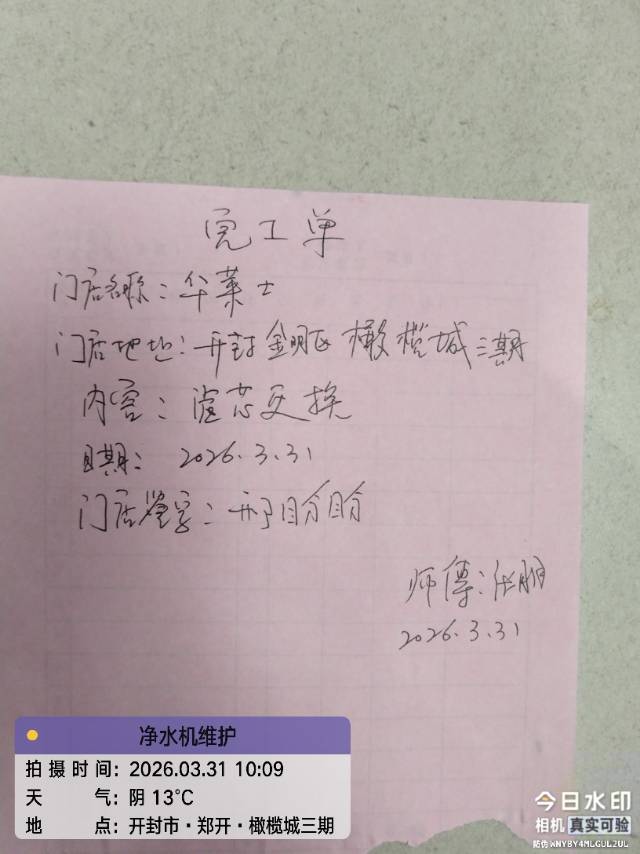 完工单
门店名称：华莱士
门店地址：开封金明区橄榄城三期
内容：滤芯更换
日期：2026.3.31
门店签字：邢盼盼
师傅：张朋
2026.3.31
净水机维护
拍摄时间：2026.03.31 10:09
天气：阴 13℃
地点：开封市·郑开·橄榄城三期
今日水印
相机 真实可验
防伪 WNYBY4MLGULZUL